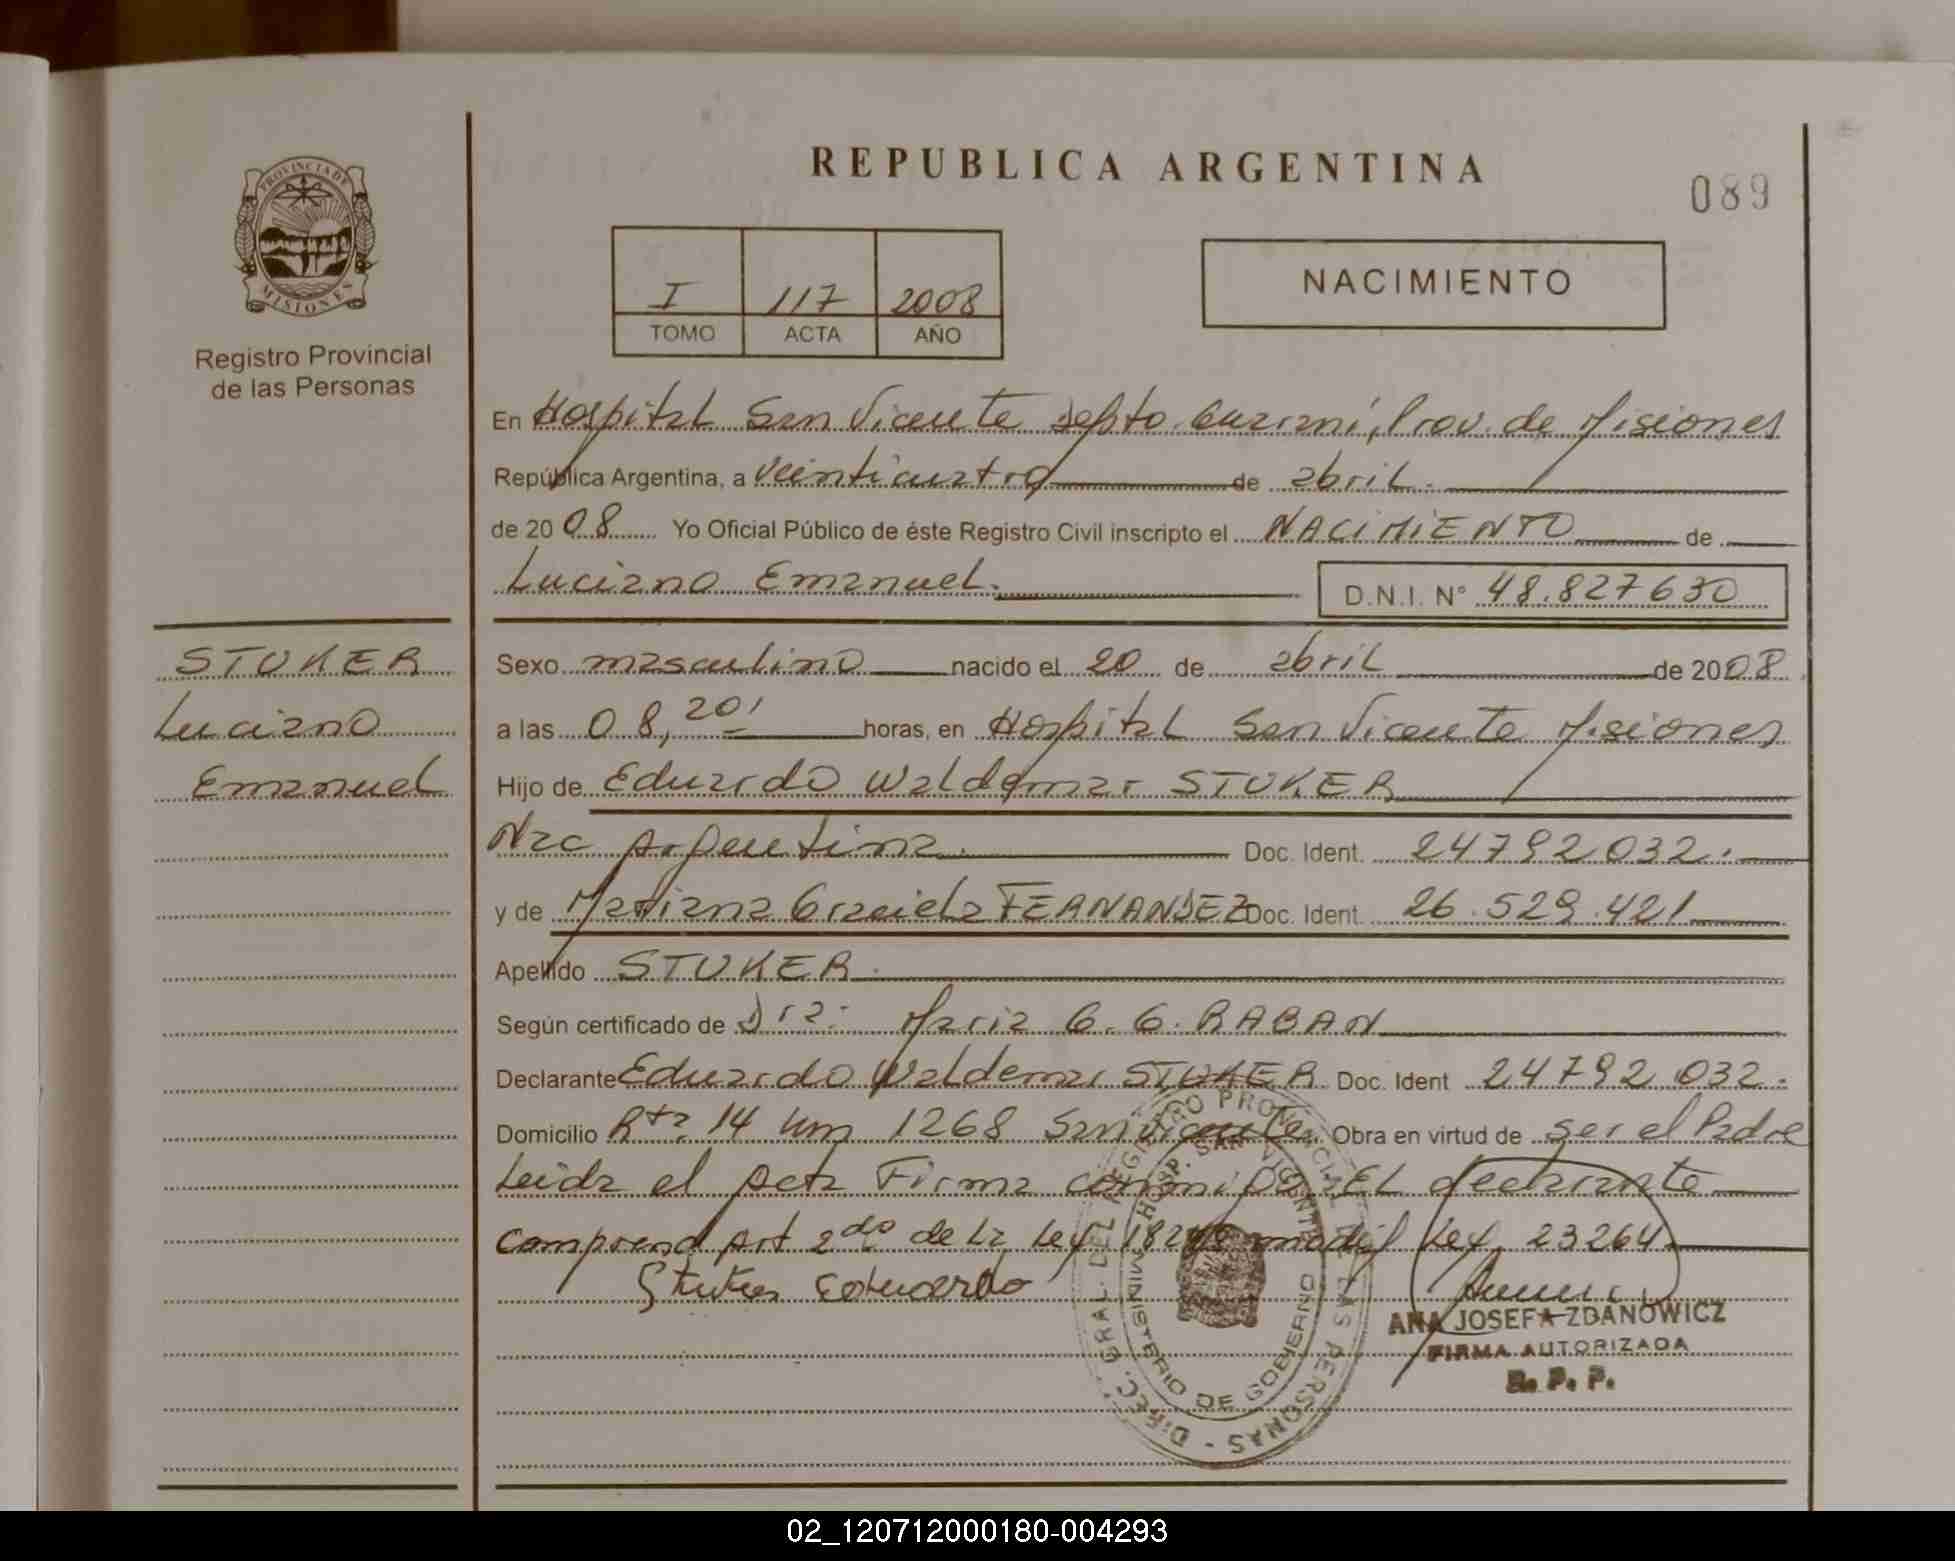 PROVINCIA DE
MISIONES
Registro Provincial
de las Personas
STUKER
Luciano
Emanuel
REPUBLICA ARGENTINA
089
I 117 2008
TOMO ACTA AÑO
NACIMIENTO
En Hospital San Vicente Depto. Guaraní, Prov. de Misiones
República Argentina, a veinticuatro de abril.
de 2008 Yo Oficial Público de éste Registro Civil inscripto el NACIMIENTO de
Luciano Emanuel. D.N.I. N° 48.827630
Sexo masculino nacido el 20 de abril de 2008
a las 08,20' horas, en Hospital San Vicente Misiones
Hijo de Eduardo Waldemar STUKER
Nac Argentina. Doc. Ident. 24792032.
y de Mariana Graciela FERNANDEZ Doc. Ident. 26.529.421
Apellido STUKER.
Según certificado de Dra. Maria G. G. RABAN
Declarante Eduardo Waldemar STUKER Doc. Ident 24792032.
Domicilio Rta. 14 Km 1268 San Vicente. Obra en virtud de ser el Padre
Leida el Acta Firma conmigo EL declarante
comprend Art 2do de La Ley 18248 modif Ley 23264
Stuker Eduardo
DIREC. GRAL. DEL REGISTRO PROVINCIAL DE LAS PERSONAS -
HOSP. SAN VICENTE
MINISTERIO DE GOBIERNO
ANA JOSEFA ZDANOWICZ
FIRMA AUTORIZADA
R. P. P.
02_120712000180-004293